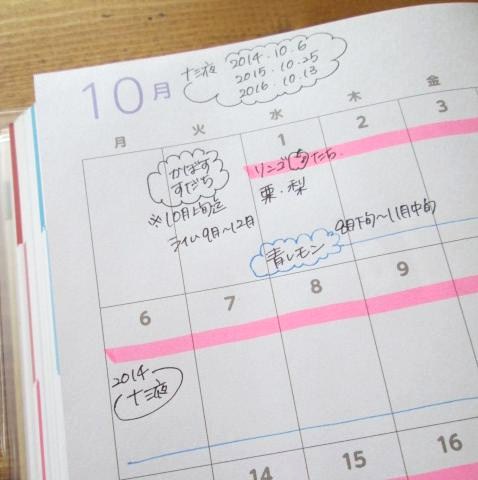 十三夜 2014.10.6
2015.10.25
2016.10.13
10月
月 火 水 木 金
1 2 3
かぼす
すだち
※10月上旬迄
ライム9月〜12月
リンゴ旬たち
栗・梨
青レモン
9月下旬〜11月中旬
6 7 8 9
2014
十三夜
14 15 16